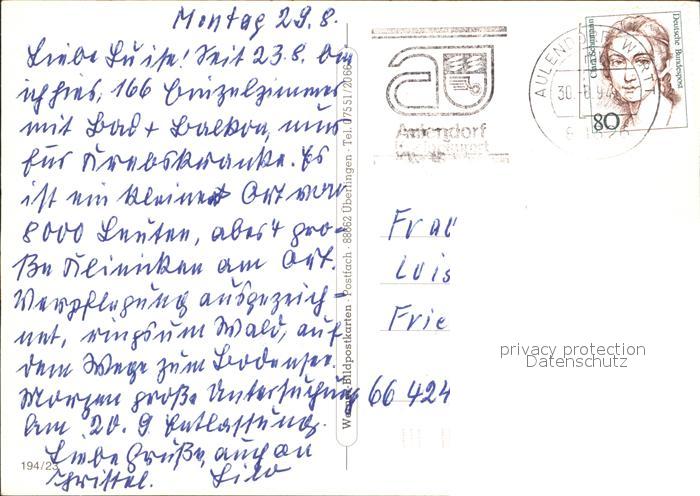 Montag 29.8.
Liebe Luise! Seit 23.8. bin
ich hier, 166 Einzelzimmer
mit Bad + Balkon, nur
für Krebskranke. Es
ist ein kleiner Ort von
8000 Leuten, aber 4 gro-
ße Kliniken am Ort.
Verpflegung ausgezeich-
net, ringsum Wald, auf
dem Wege zum Bodensee.
Morgen große Untersuchung
Am 20. 9 Entlassung.
Liebe Grüße, auch an
Christel. Lilo
194/23
-Bildpostkarten · Postfach · 88662 Überlingen · Tel. 07551/2066
Aulendorf
AULENDORF, WÜRTT
30.-8.94
Deutsche Bundespost
Clara Schumann
80
Frau
Luis
Frie
66 424
privacy protection
Datenschutz